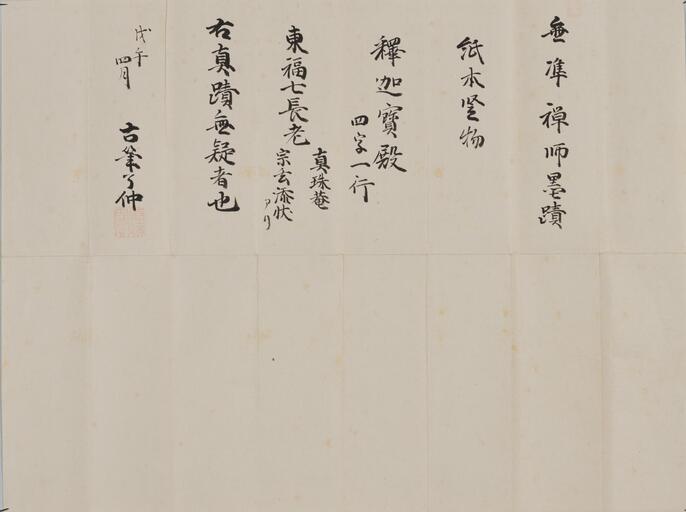 無準禅師墨蹟
紙本竪物
釋迦寳殿
四字一行
東福七長老
真珠菴
宗玄添状
アリ
右真蹟無疑者也
戊午
四月
古筆了仲